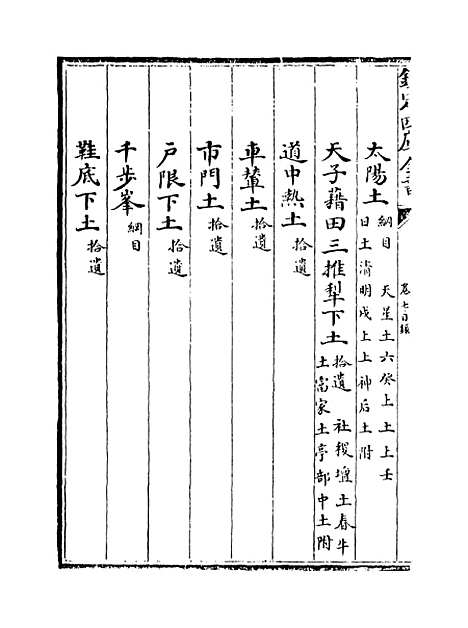 欽定四庫全書
卷七目録
太陽土 綱目 天星土六癸上土上壬
日土清明戌上上神后土附
天子藉田三推犁下土 拾遺 社稷壇土春牛
土富家土亭部中土附
道中熱土 拾遺
車輦土 拾遺
市門土 拾遺
戶限下土 拾遺
千步峯 綱目
鞋底下土 拾遺